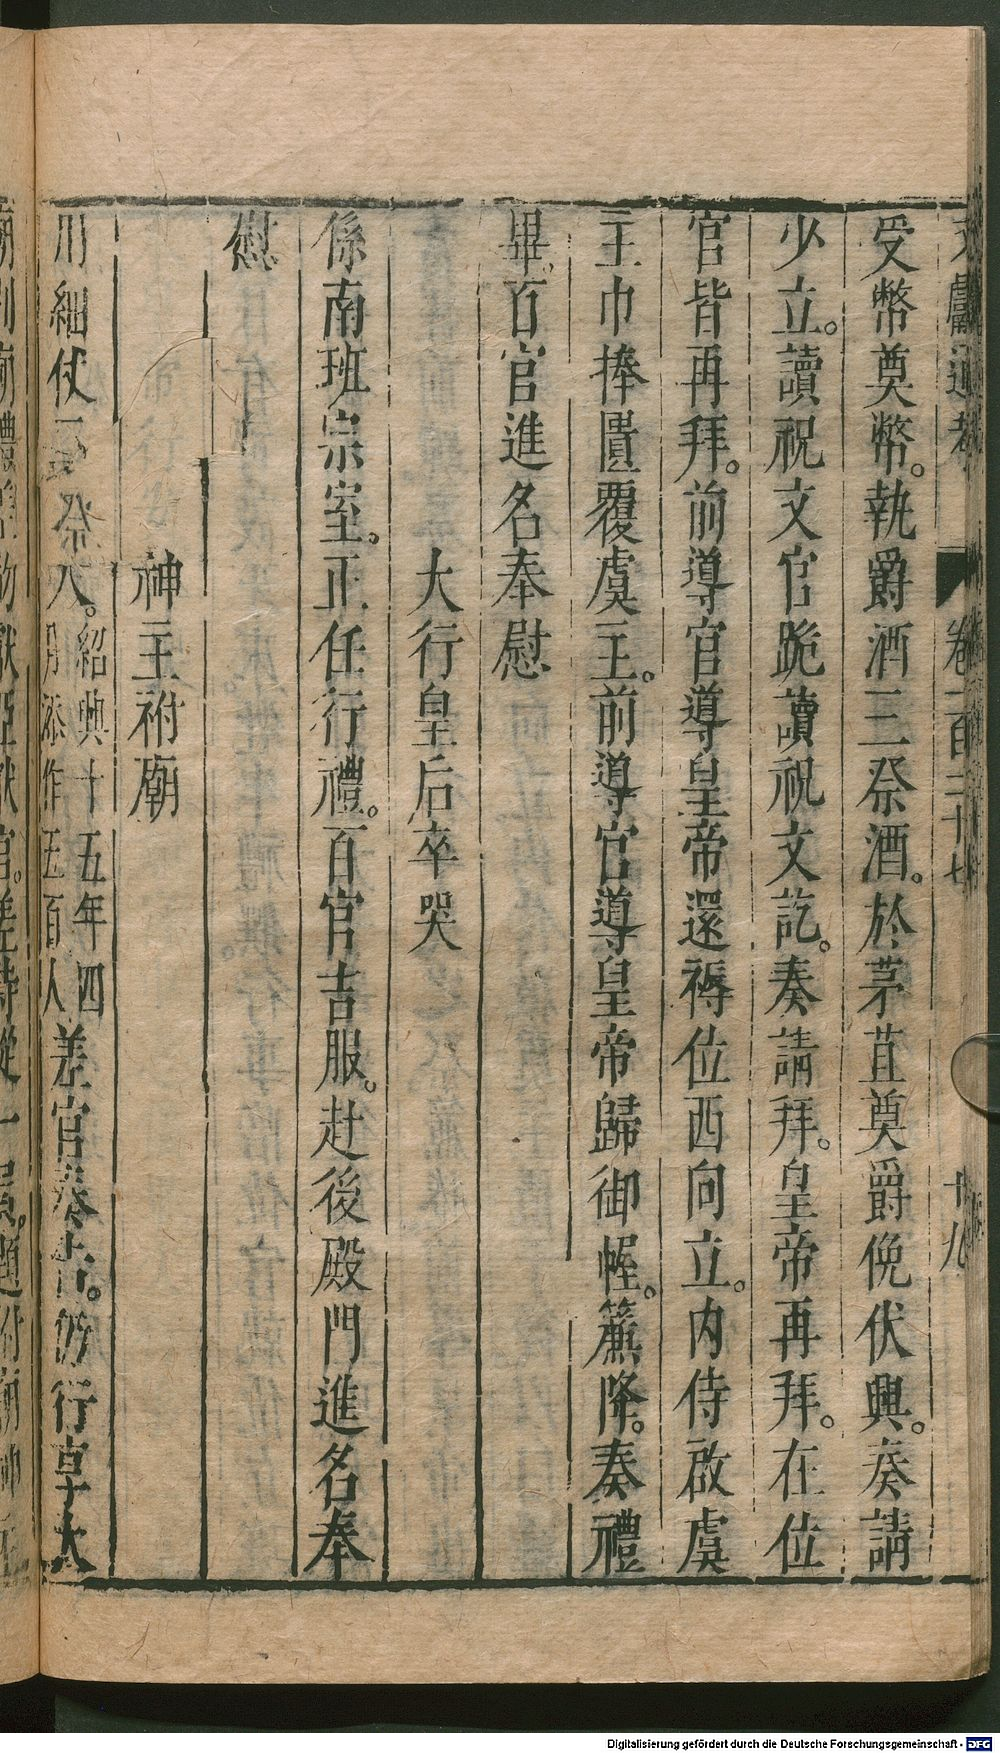 文獻通考 卷一百二十七 十九
受幣奠幣。執爵酒三祭酒。於茅苴奠爵俛伏興。奏請
少立。讀祝文官跪讀祝文訖。奏請拜。皇帝再拜。在位
官皆再拜。前導官導皇帝還褥位西向立。内侍啟虞
主巾捧匱覆虞主。前導官導皇帝歸御幄。簾降。奏禮
畢。百官進名奉慰
大行皇后卒哭
係南班宗室。正任行禮。百官吉服。赴後殿門進名奉
慰
神主祔廟
用細仗 人。紹興十五年四
月添作五百人
差官奏告。仍行享大
Digitalisierung gefördert durch die Deutsche Forschungsgemeinschaft - DFG